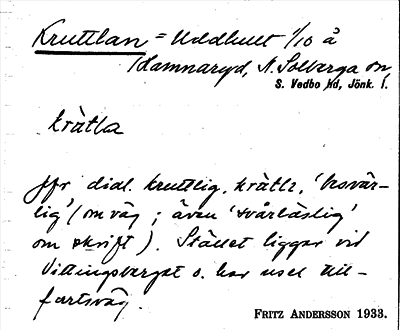 Kruttlan = Uddhult 1/10 å
Hamnaryd, N. Solberga sn,
S. Vedbo hd, Jönk. l.
kràtla
Jfr dial. kruttlig, kràtlı, 'besvär-
lig' (om väg; även 'svårläslig'
om skrift). Stället ligger vid
Vittingsberget o. har usel till-
fartsväg.
FRITZ ANDERSSON 1933.